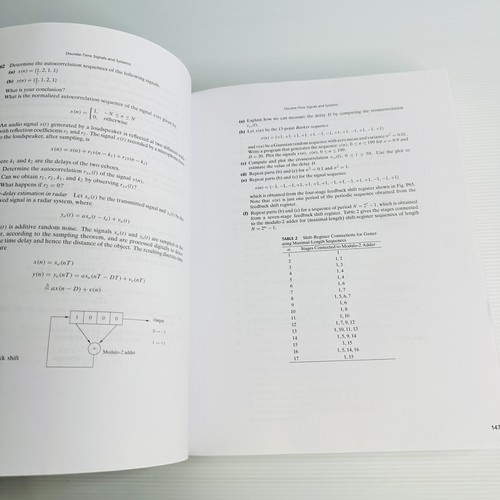 Discrete-Time Signals and Systems
Determine the autocorrelation sequences of the following signals.
(a) x(n) = {1, 2, 1, 1}
(b) y(n) = {1, 1, 2, 1}
What is your conclusion?
What is the normalized autocorrelation sequence of the signal x(n) given by
x(n) = { 1, −N ≤ n ≤ N
0, otherwise
An audio signal s(t) generated by a loudspeaker is reflected at two different walls
with reflection coefficients r1 and r2. The signal x(t) recorded by a microphone
the loudspeaker, after sampling, is
x(n) = s(n) + r1s(n − k1) + r2s(n − k2)
k1 and k2 are the delays of the two echoes.
Determine the autocorrelation rxx(l) of the signal x(n).
Can we obtain r1, r2, k1, and k2 by observing rxx(l)?
What happens if r2 = 0?
-delay estimation in radar Let xa(t) be the transmitted signal and ya(t) be
ved signal in a radar system, where
ya(t) = axa(t − td) + va(t)
(t) is additive random noise. The signals xa(t) and ya(t) are sampled in the
r, according to the sampling theorem, and are processed digitally to
e time delay and hence the distance of the object. The resulting discrete-time
are
x(n) = xa(nT)
y(n) = ya(nT) = axa(nT − DT) + va(nT)
≜ ax(n − D) + v(n)
1 0 0 0
Output
0 → −1
1 → +1
+
Modulo-2 adder
ck shift
Discrete-Time Signals and Systems
(a) Explain how we can measure the delay D by computing the crosscorrelation
rxy(l).
(b) Let x(n) be the 13-point Barker sequence
x(n) = {+1, +1, +1, +1, +1, −1, −1, +1, +1, −1, +1, −1, +1}
and v(n) be a Gaussian random sequence with zero mean and variance σ² = 0.01.
Write a program that generates the sequence y(n), 0 ≤ n ≤ 199 for a = 0.9 and
D = 20. Plot the signals x(n), y(n), 0 ≤ n ≤ 199.
(c) Compute and plot the crosscorrelation rxy(l), 0 ≤ l ≤ 59. Use the plot to
estimate the value of the delay D.
(d) Repeat parts (b) and (c) for σ² = 0.1 and σ² = 1.
(e) Repeat parts (b) and (c) for the signal sequence
x(n) = {−1, −1, −1, +1, +1, +1, +1, −1, +1, −1, +1, +1, −1, −1, +1}
which is obtained from the four-stage feedback shift register shown in Fig. P65.
Note that x(n) is just one period of the periodic sequence obtained from the
feedback shift register.
(f) Repeat parts (b) and (c) for a sequence of period N = 2⁷ − 1, which is obtained
from a seven-stage feedback shift register. Table 2 gives the stages connected
to the modulo-2 adder for (maximal-length) shift-register sequences of length
N = 2ᵐ − 1.
TABLE 2 Shift-Register Connections for Gener-
ating Maximal-Length Sequences
m Stages Connected to Modulo-2 Adder
1 1
2 1, 2
3 1, 3
4 1, 4
5 1, 4
6 1, 6
7 1, 7
8 1, 5, 6, 7
9 1, 6
10 1, 8
11 1, 10
12 1, 7, 9, 12
13 1, 10, 11, 13
14 1, 5, 9, 14
15 1, 15
16 1, 5, 14, 16
17 1, 15
147